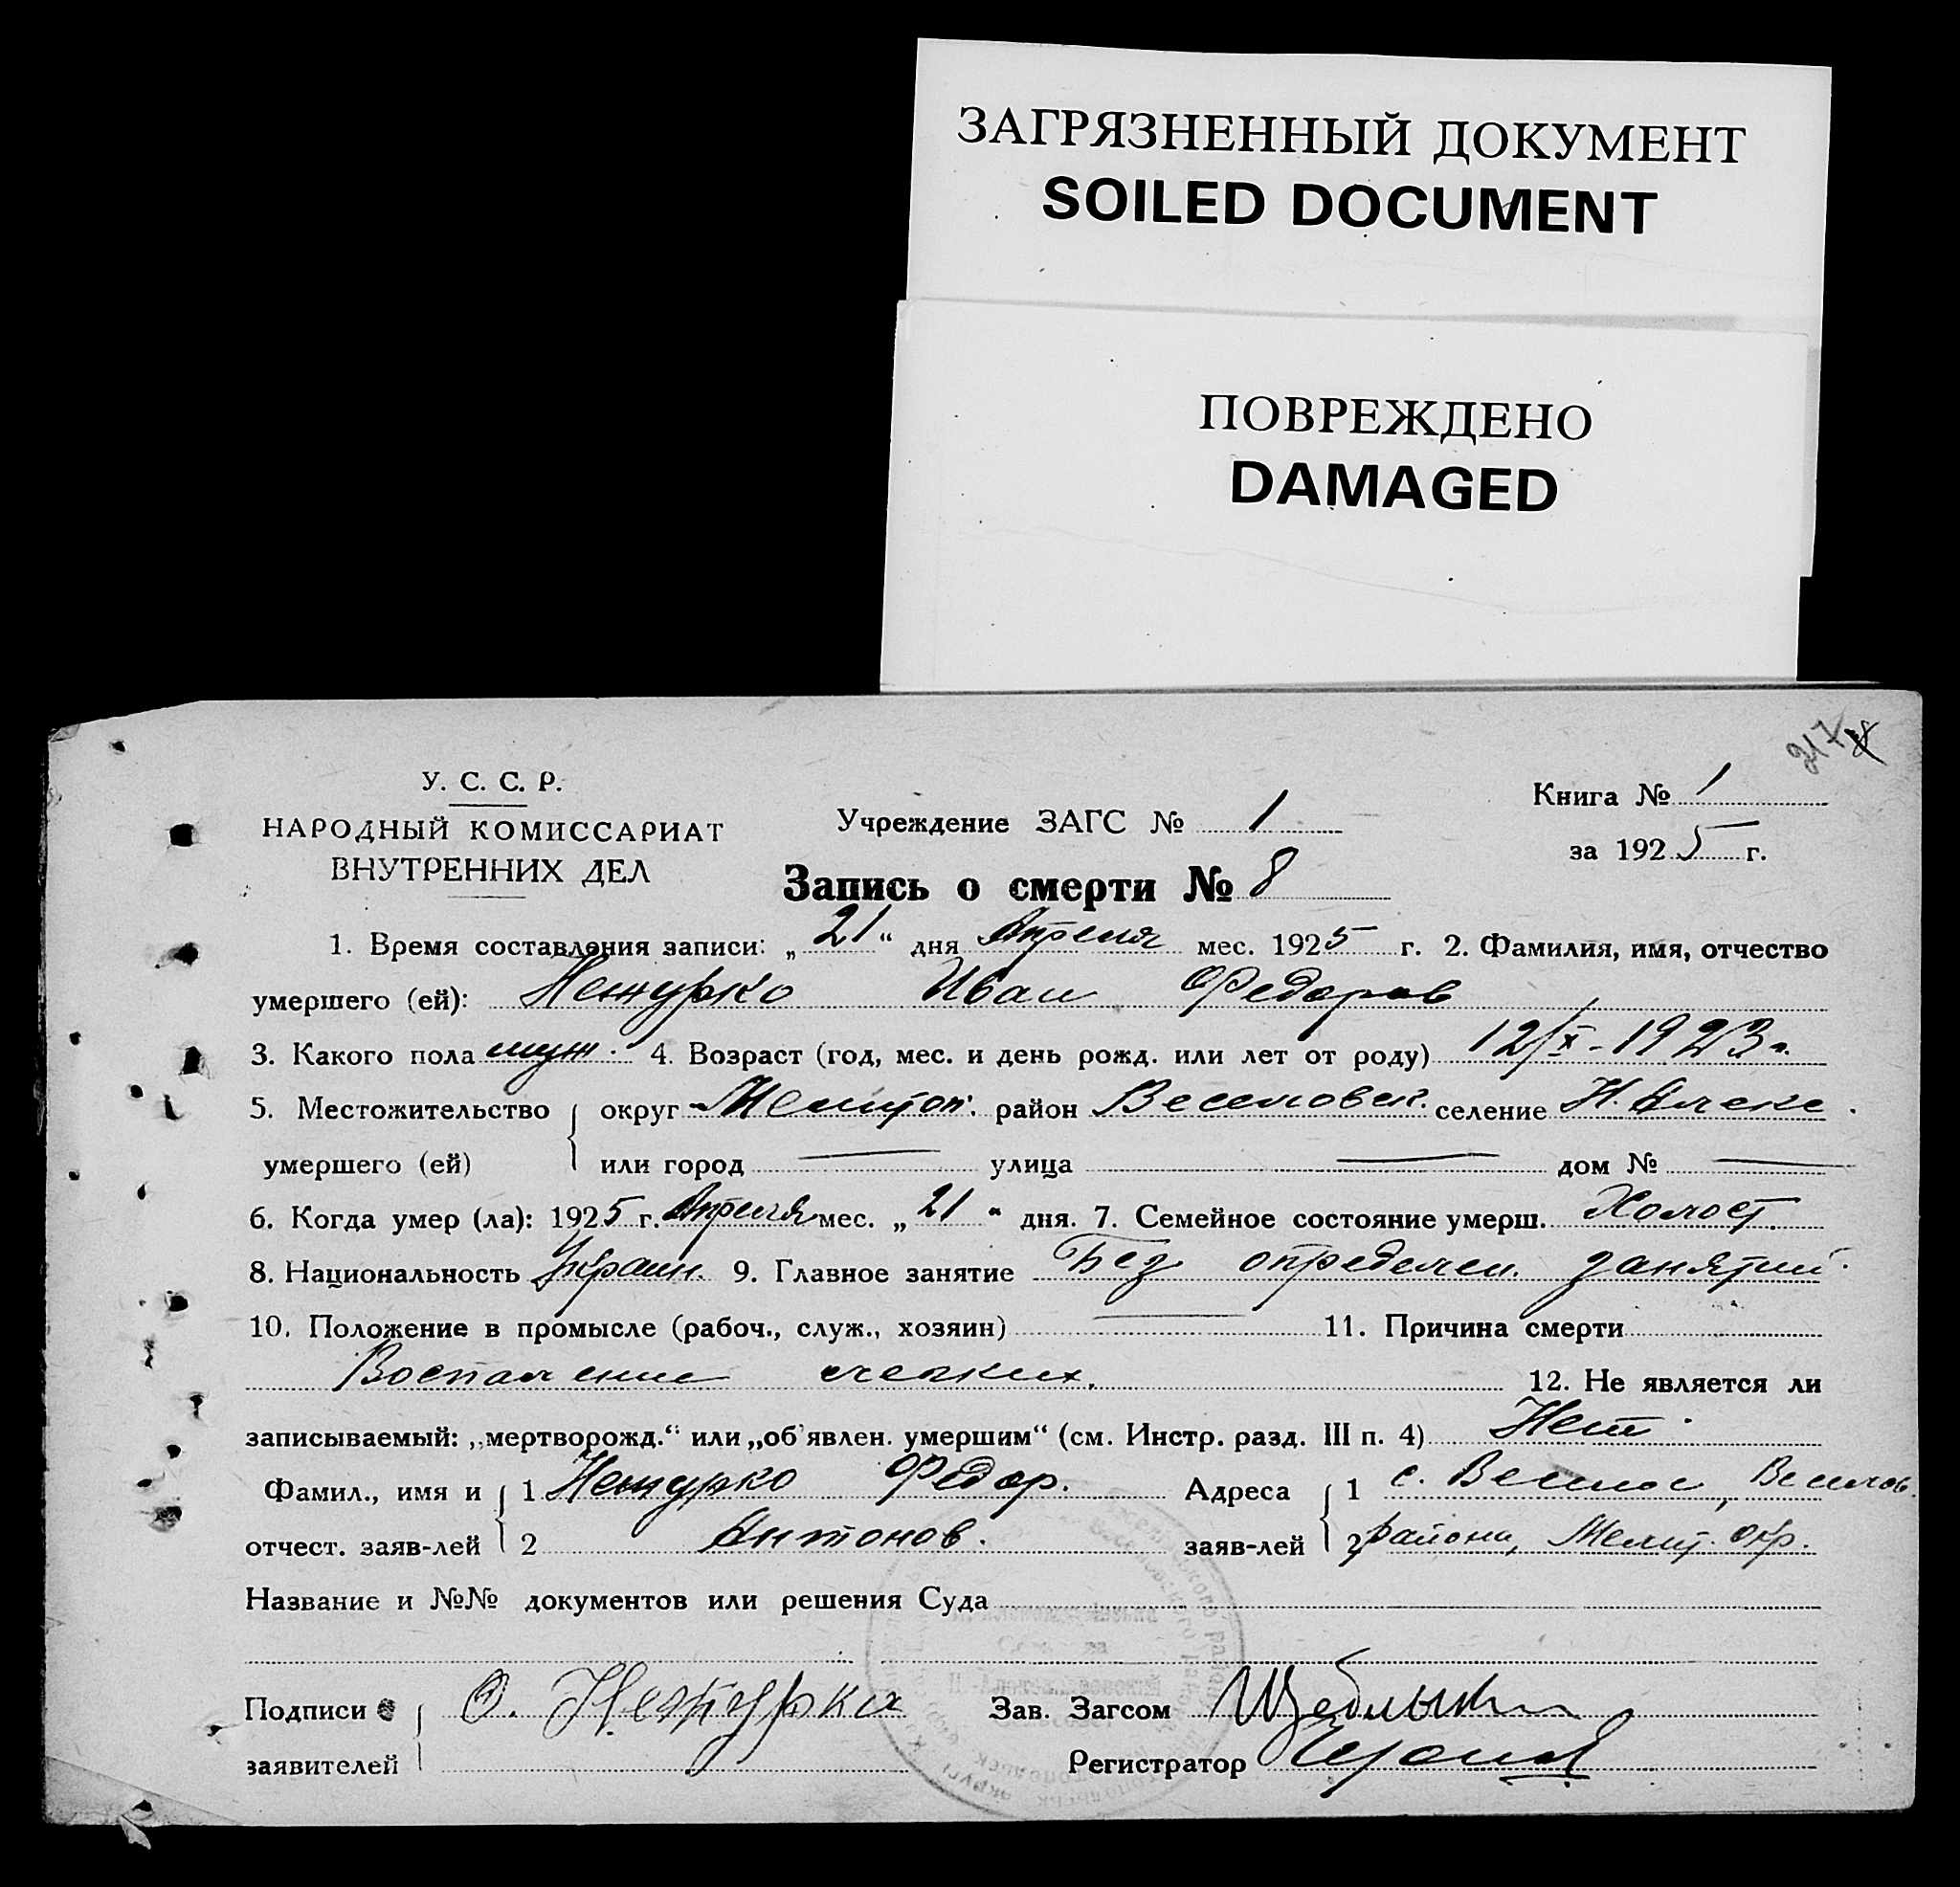 ЗАГРЯЗНЕННЫЙ ДОКУМЕНТ
SOILED DOCUMENT
ПОВРЕЖДЕНО
DAMAGED
217
У. С. С. Р.
НАРОДНЫЙ КОМИССАРИАТ
ВНУТРЕННИХ ДЕЛ
Учреждение ЗАГС № 1
Книга № 1
за 1925 г.
Запись о смерти № 8
1. Время составления записи: „21“ дня Апреля мес. 1925 г. 2. Фамилия, имя, отчество
умершего (ей): Нежурко Иван Федоров
3. Какого пола муж. 4. Возраст (год, мес. и день рожд. или лет от роду) 12/X-1923 г.
5. Местожительство округ Мелитоп. район Веселовск. селение Н. Алекс.
умершего (ей) или город — улица — дом № —
6. Когда умер (ла): 1925 г. Апреля мес. „21“ дня. 7. Семейное состояние умерш. Холост.
8. Национальность Украин. 9. Главное занятие Без определен. занятий.
10. Положение в промысле (рабоч., служ., хозяин) — 11. Причина смерти
Воспаление легких. 12. Не является ли
записываемый: „мертворожд.“ или „об'явлен. умершим“ (см. Инстр. разд. III п. 4) Нет.
Фамил., имя и 1 Нежурко Федор. Адреса 1 с. Веселое, Веселов.
отчест. заяв-лей 2 Антонов. заяв-лей 2 района, Мелит. окр.
Название и №№ документов или решения Суда
Подписи Ф. Нежурка Зав. Загсом Щеблыкин
заявителей Регистратор